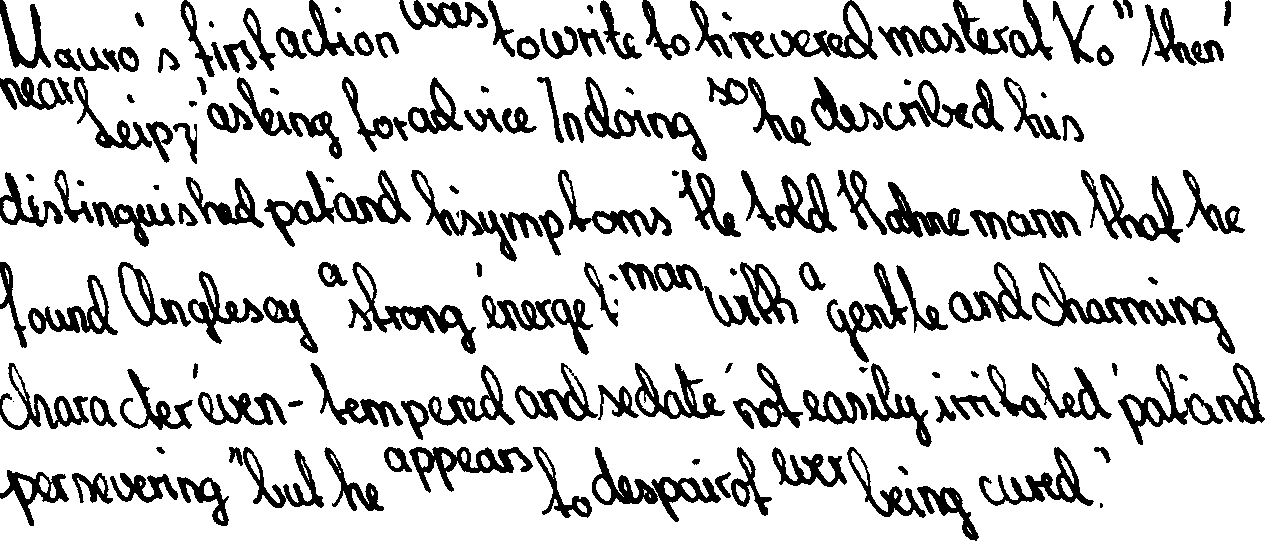 Mauro's first action was to write to hi revered master at Ko" then'
near Leipz' asking for advice In doing so he described his
distinguished pat and hi symptoms He told Hahnemann that he
found Anglesey a "strong' energeti man with a gentle and charming
character' even-tempered and sedate' not easily irritated' pat and
persevering "but he appears to despair of ever being cured."